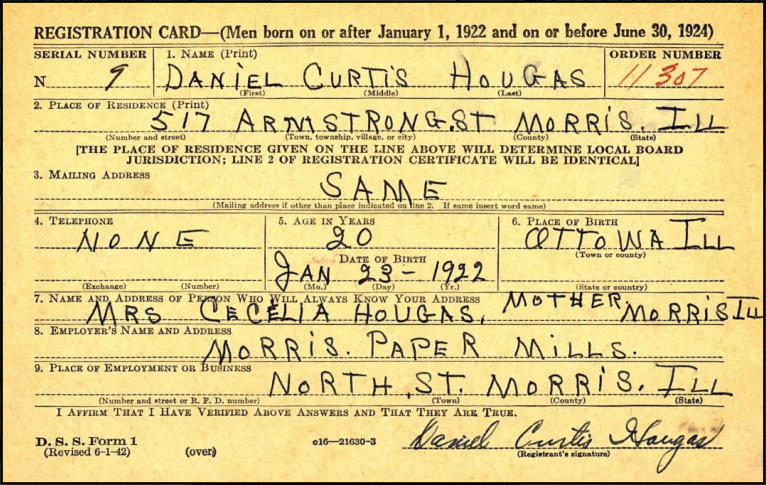 REGISTRATION CARD—(Men born on or after January 1, 1922 and on or before June 30, 1924)
SERIAL NUMBER 1. NAME (Print) ORDER NUMBER
N 9 DANIEL CURTIS HOUGAS 11307
(First) (Middle) (Last)
2. PLACE OF RESIDENCE (Print)
517 ARMSTRONG.ST MORRIS, ILL
(Number and street) (Town, township, village, or city) (County) (State)
[THE PLACE OF RESIDENCE GIVEN ON THE LINE ABOVE WILL DETERMINE LOCAL BOARD
JURISDICTION; LINE 2 OF REGISTRATION CERTIFICATE WILL BE IDENTICAL]
3. MAILING ADDRESS
SAME
(Mailing address if other than place indicated on line 2. If same insert word same)
4. TELEPHONE 5. AGE IN YEARS 6. PLACE OF BIRTH
NONE 20 OTTOWA ILL
(Town or county)
DATE OF BIRTH
JAN 23 - 1922
(Exchange) (Number) (Mo.) (Day) (Yr.) (State or country)
7. NAME AND ADDRESS OF PERSON WHO WILL ALWAYS KNOW YOUR ADDRESS
MRS CECELIA HOUGAS, MOTHER MORRIS ILL
8. EMPLOYER'S NAME AND ADDRESS
MORRIS. PAPER MILLS.
9. PLACE OF EMPLOYMENT OR BUSINESS
NORTH. ST. MORRIS. ILL
(Number and street or R. F. D. number) (Town) (County) (State)
I AFFIRM THAT I HAVE VERIFIED ABOVE ANSWERS AND THAT THEY ARE TRUE.
D. S. S. Form 1 c16—21630-3 Daniel Curtis Hougas
(Revised 6-1-42) (over) (Registrant's signature)